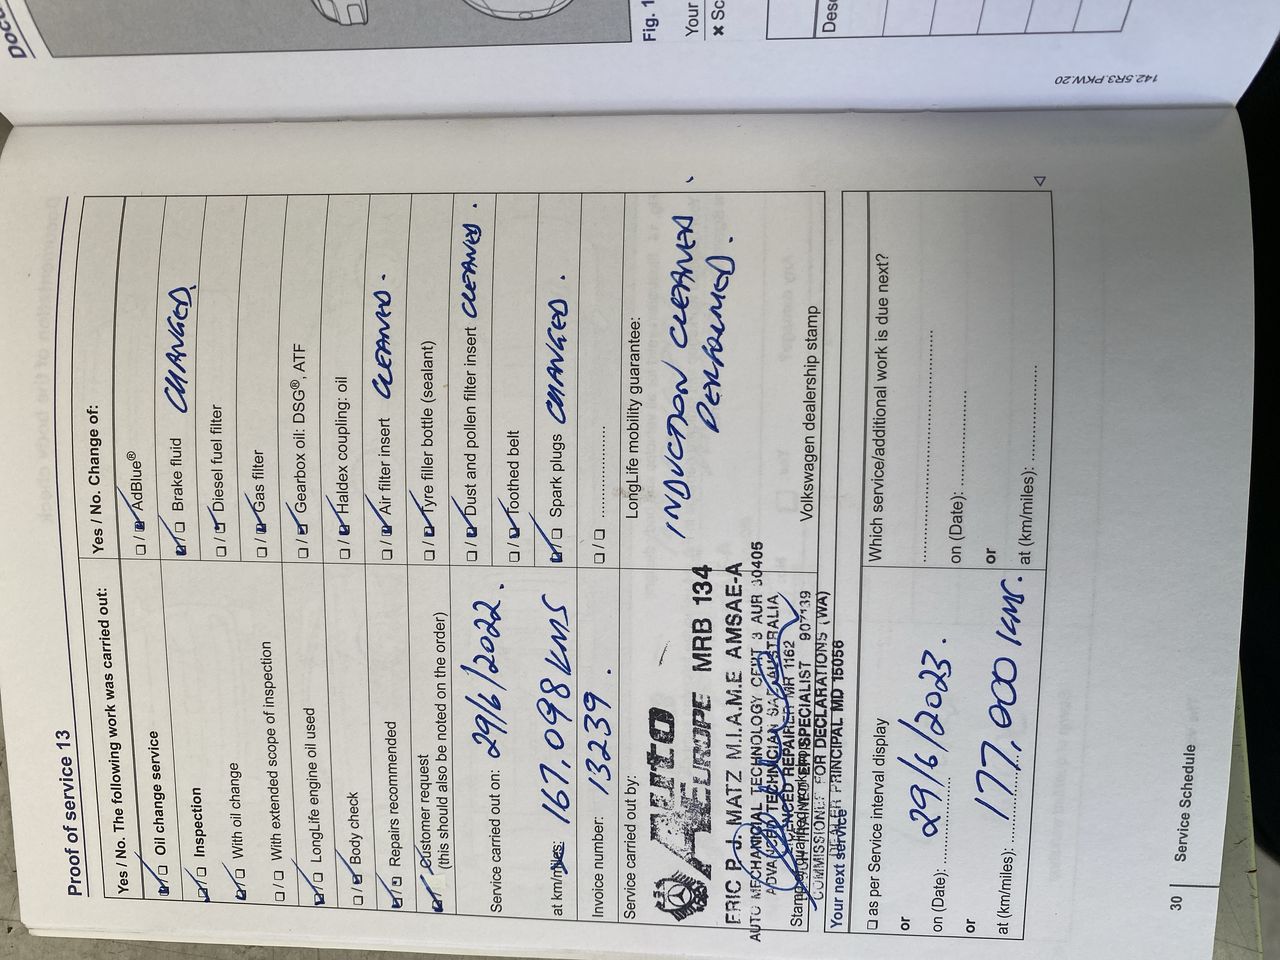 Proof of service 13
Yes / No. The following work was carried out:
☑ / ☐ Oil change service
☑ / ☐ Inspection
☑ / ☐ With oil change
☐ / ☐ With extended scope of inspection
☑ / ☐ LongLife engine oil used
☐ / ☑ Body check
☑ / ☐ Repairs recommended
☑ / Customer request
(this should also be noted on the order)
Service carried out on: 29/6/2022.
at km/miles: 167,098 KMS
Invoice number: 13239.
Service carried out by:
Auto
EUROPE MRB 134
ERIC P. J. MATZ M.I.A.M.E AMSAE-A
AUTO MECHANICAL TECHNOLOGY CERT 3 AUR 30405
ADVANCED TECHNICIAN SAE AUSTRALIA
LICENCED REPAIRER MR 1162
EFI SPECIALIST 907139
COMMISSIONER FOR DECLARATIONS (WA)
DEALER PRINCIPAL MD 15056
Yes / No. Change of:
☐ / ☑ AdBlue®
☑ / ☐ Brake fluid CHANGED
☐ / ☑ Diesel fuel filter
☐ / ☑ Gas filter
☐ / ☑ Gearbox oil: DSG®, ATF
☐ / ☑ Haldex coupling: oil
☐ / ☑ Air filter insert CLEANED.
☐ / ☑ Tyre filler bottle (sealant)
☐ / ☑ Dust and pollen filter insert CLEANED.
☐ / ☑ Toothed belt
☑ / ☐ Spark plugs CHANGED.
☐ / ☐ ....................
LongLife mobility guarantee:
INDUCTION CLEANED
PERFORMED.
Volkswagen dealership stamp
Your next service
☐ as per Service interval display
or
on (Date): 29/6/2023.
or
at (km/miles): 177,000 KMS.
Which service/additional work is due next?
on (Date): ....................
or
at (km/miles): ....................
30
Service Schedule
Fig. 1
Your
Sc
Des
142.5R3.PKW.20